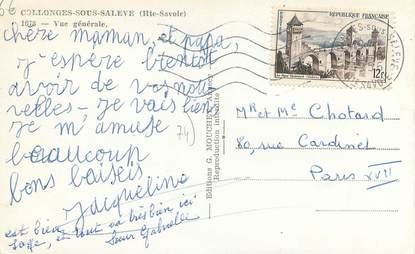 COLLONGES-SOUS-SALEVE (Hte-Savoie)
1678 — Vue générale.
chère maman et papa,
j'espère bientôt
avoir de vos nou
velles - je vais bien
je m'amuse
beaucoup
bons baisers
Jacqueline
est bien
sage, et tout va très bien ici
Sœur Gabrielle
74)
Editions G. MOUCHET
REPUBLIQUE FRANÇAISE
12F
Mr et Me Chotard
80, rue Cardinet
Paris XVII